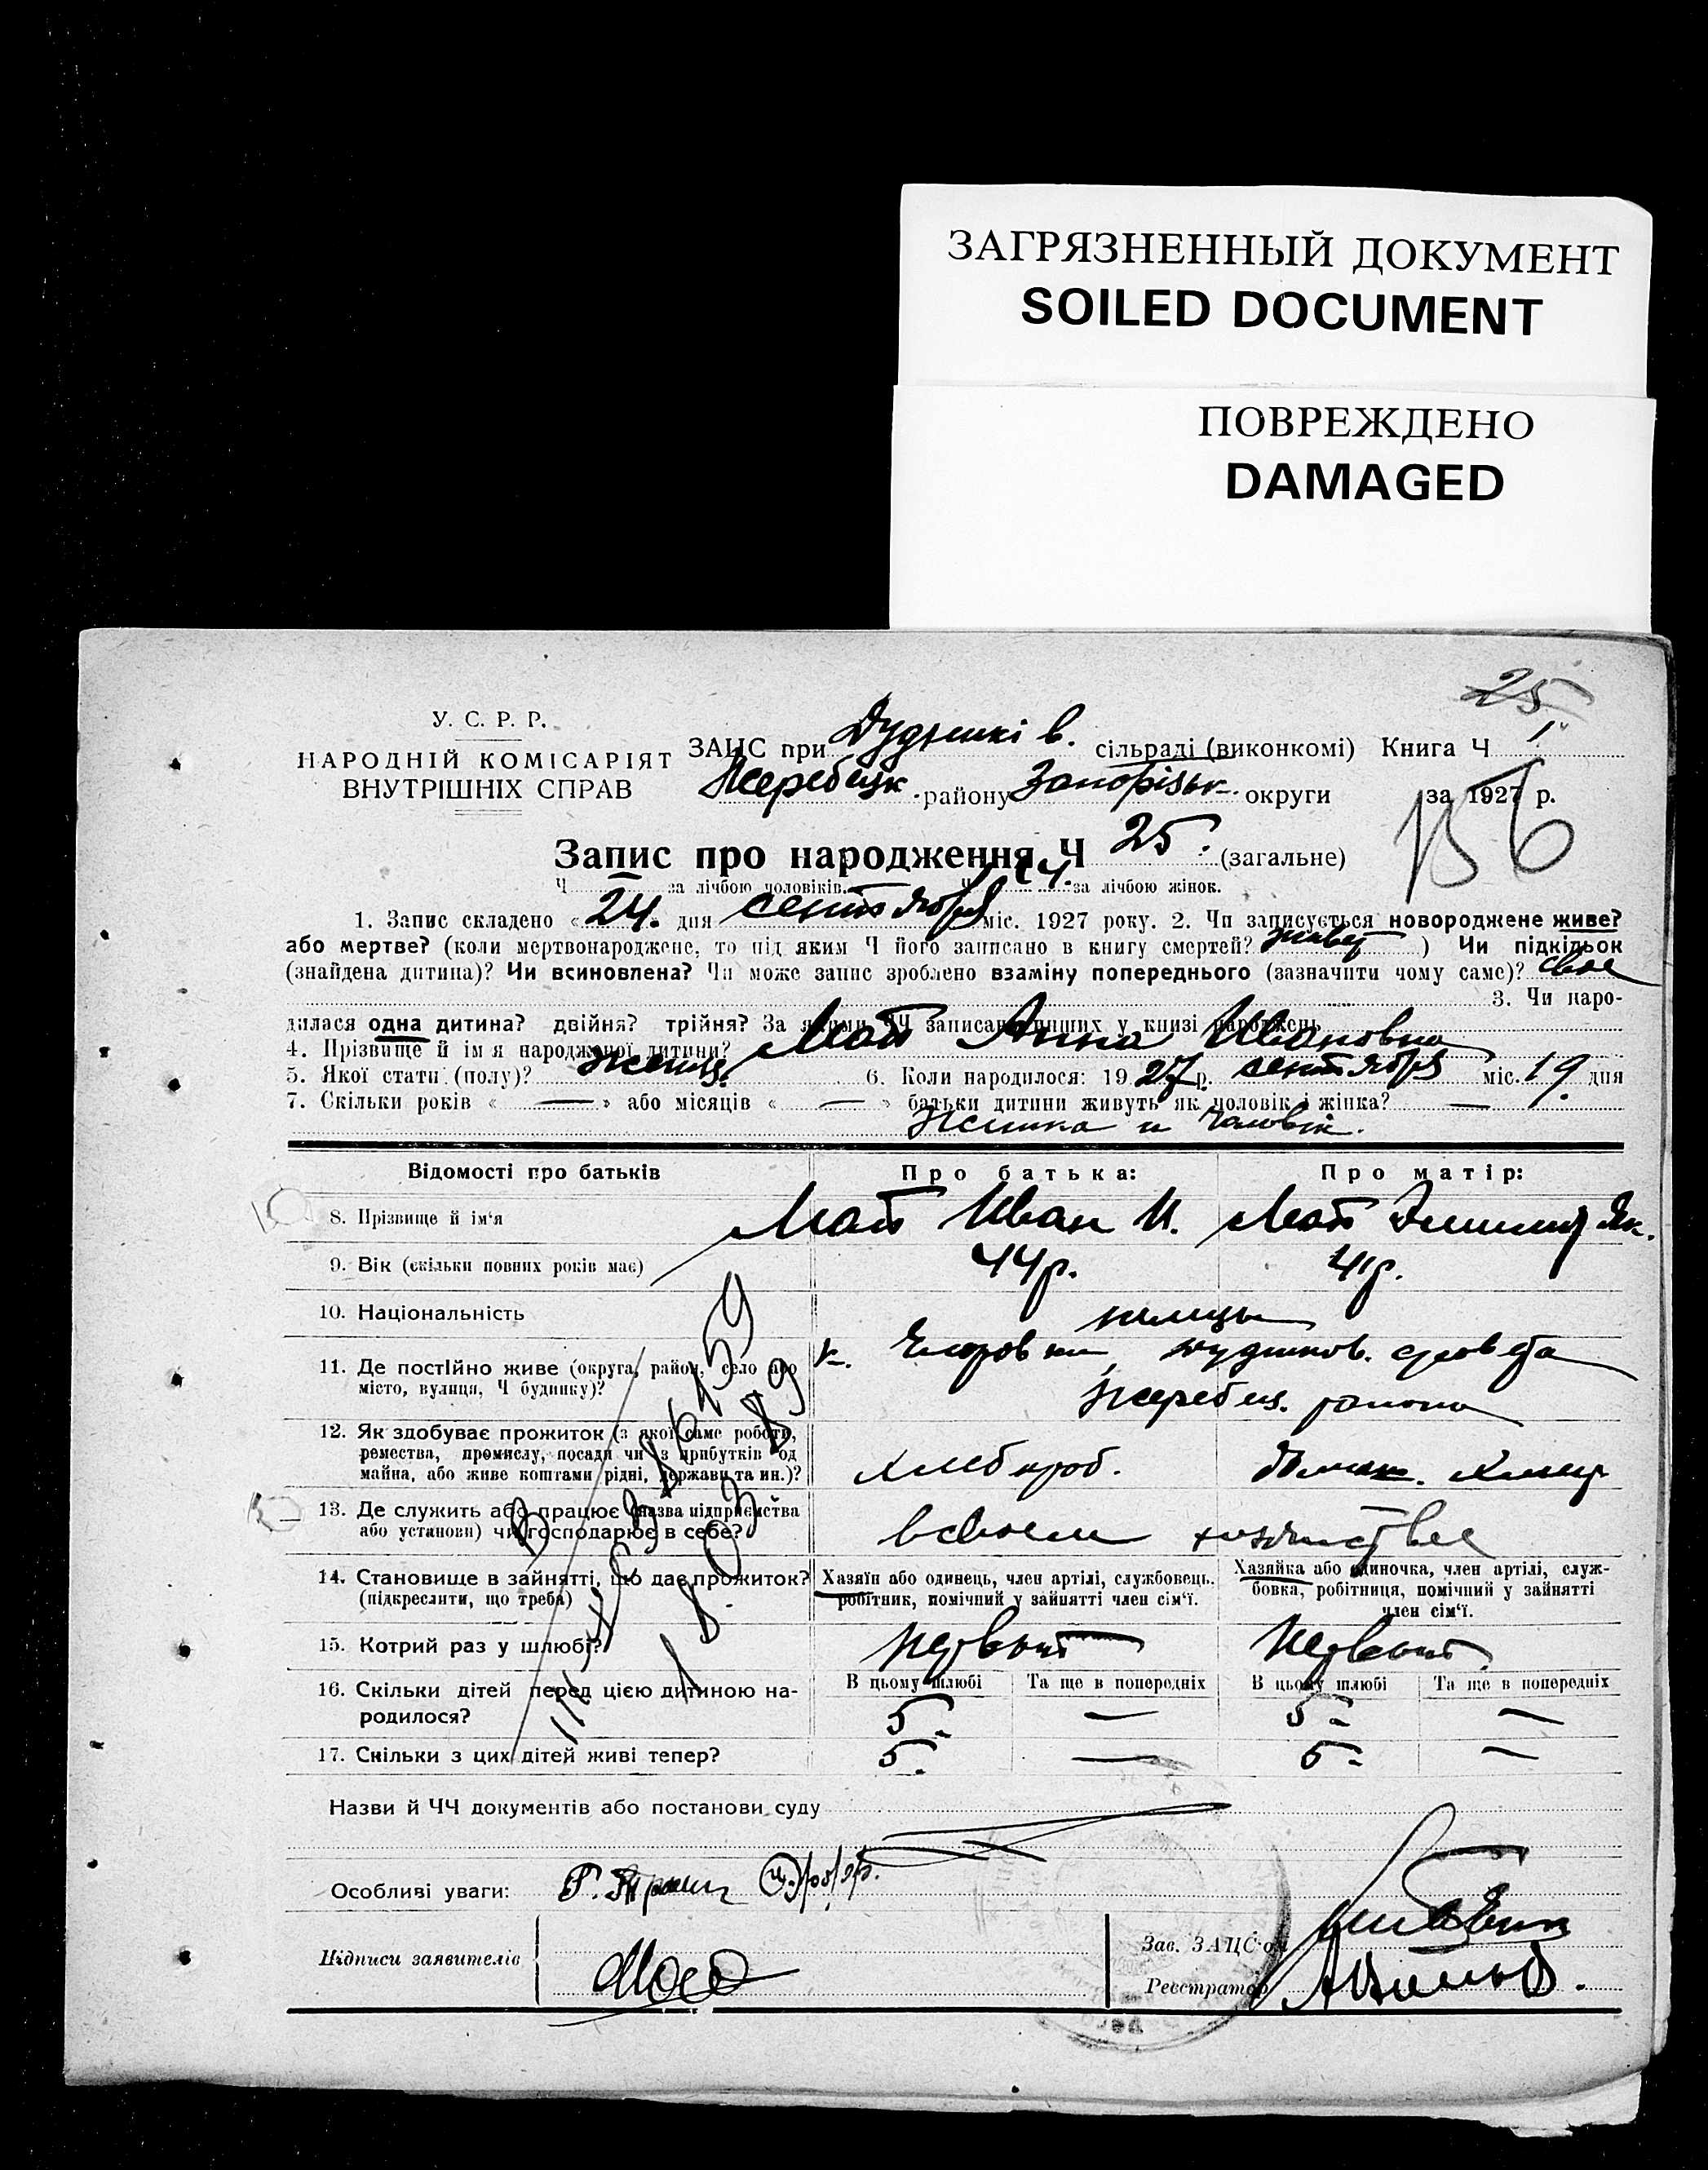 ЗАГРЯЗНЕННЫЙ ДОКУМЕНТ
SOILED DOCUMENT
ПОВРЕЖДЕНО
DAMAGED
25
У. С. Р. Р.
НАРОДНІЙ КОМІСАРІЯТ
ВНУТРІШНІХ СПРАВ
ЗАЦС при сільраді (виконкомі) Книга Ч 1
Жеребецк району Запоріськ округи за 1927 р.
Запис про народження Ч 25. (загальне)
Ч за лічбою чоловіків. Ч 14. за лічбою жінок.
1. Запис складено « 24 » дня сентября міс. 1927 року. 2. Чи записується новороджене живе?
або мертве? (коли мертвонароджене, то під яким Ч його записано в книгу смертей? ) Чи підкідьок
(знайдена дитина)? Чи всиновлена? Чи може запис зроблено взаміну попереднього (зазначити чому саме)? свое
3. Чи наро-
дилася одна дитина? двійня? трійня? За якими ЧЧ записано инших у книзі народжень
4. Прізвище й ім я народженої дитини? Мат Анна Ивановна
5. Якої стати (полу)? 6. Коли народилося: 1927 р. сентября міс. 19 дня
7. Скільки років « — » або місяців « — » батьки дитини живуть як чоловік і жінка? —
Жинка и Чаловік.
Відомості про батьків Про батька: Про матір:
8. Прізвище й ім'я Мат Иван И. Мат Як.
9. Вік (скільки повних років має) 44 р. 41 р.
10. Національність немцы
11. Де постІйно живе (округа, район, село або
місто, вулиця, Ч будинку)?
к. Егоровки, дудников. сровета
Жеребец. району
12. Як здобуває прожиток (з якої саме роботи,
ремества, промислу, посади чи з прибутків од
майна, або живе коштами рідні, держави та ин.)?
хлебороб.
13. Де служить або працює (назва підприємства
або установи) чи господарює в себе?
в своем хозяистве
14. Становище в зайнятті, що дає прожиток?
(підкреслити, що треба)
Хазяїн або одинець, член артілі, службовець.
робітник, помічний у зайнятті член сім'ї.
Хазяйка або одиночка, член артілі, служ-
бовка, робітниця, помічний у зайнятті
член сім'ї.
15. Котрий раз у шлюбі? первый первый
16. Скільки дітей перед цією дитиною на-
родилося?
В цьому шлюбі Та ще в попередніх В цьому шлюбі Та ще в попередніх
5 — 5 —
17. Скільки з цих дітей живі тепер? 5 — 5 —
Назви й ЧЧ документів або постанови суду
Особливі уваги:
Підписи заявителів
Зав. ЗАЦС'ом
Реєстратор